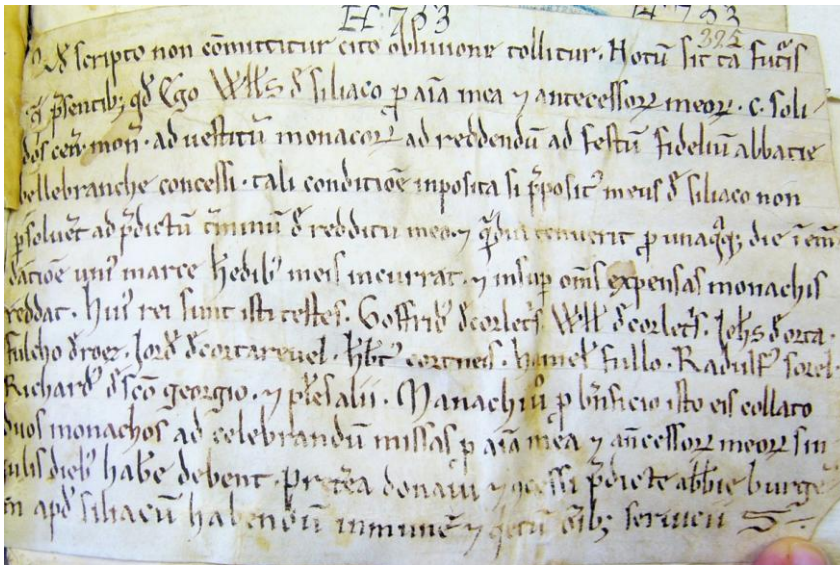 H 753 H 753
395
Qđ scripto non cōmittitur cito oblivione tollitur. Notū sit tā futis
q̄ p̄sentibȝ qđ Ego Wills đ siliaco p aīa mea ⁊ antecessoꝝ meoꝝ. c. soli-
dos cen̄ mon̄. ad vestitū monacoꝝ ad reddendū ad festū fideliū abbatie
bellebranche concessi. tali conditiōe inposita si p̄posit᷒ meus đ siliaco non
psolverit ad p̄dictū t̄minū đ redditu meo ⁊ q̄mdiu tenuerit p unaq̄q; die ī em̄
datiōe uni᷒ marce hedib᷒ meis incurrat. ⁊ insup om̄s expensas monachis
reddat. hui᷒ rei sunt isti testes. Goffrid᷒ đcorlet̄s. Will đcorlet̄s. Johs đorta.
fulcho đroez. Jord᷒ đcortarevel. hbt᷒ cortneis. hamel᷒ fullo. Radulf᷒ sorel.
Richard᷒ đscō georgio. ⁊ plres alii. Manachi ū p bn̄ficio isto eis collato
duos monachos ad celebrandū missas p aīa mea ⁊ an̄cessoꝝ meoꝝ sin
gulis dieb᷒ habe debent. pret̄ea donavi ⁊ ꝯcessi p̄dicte abbie burgē
m̄ apđ siliacū habendū inmunē ⁊ q̄etū ōibȝ servicii